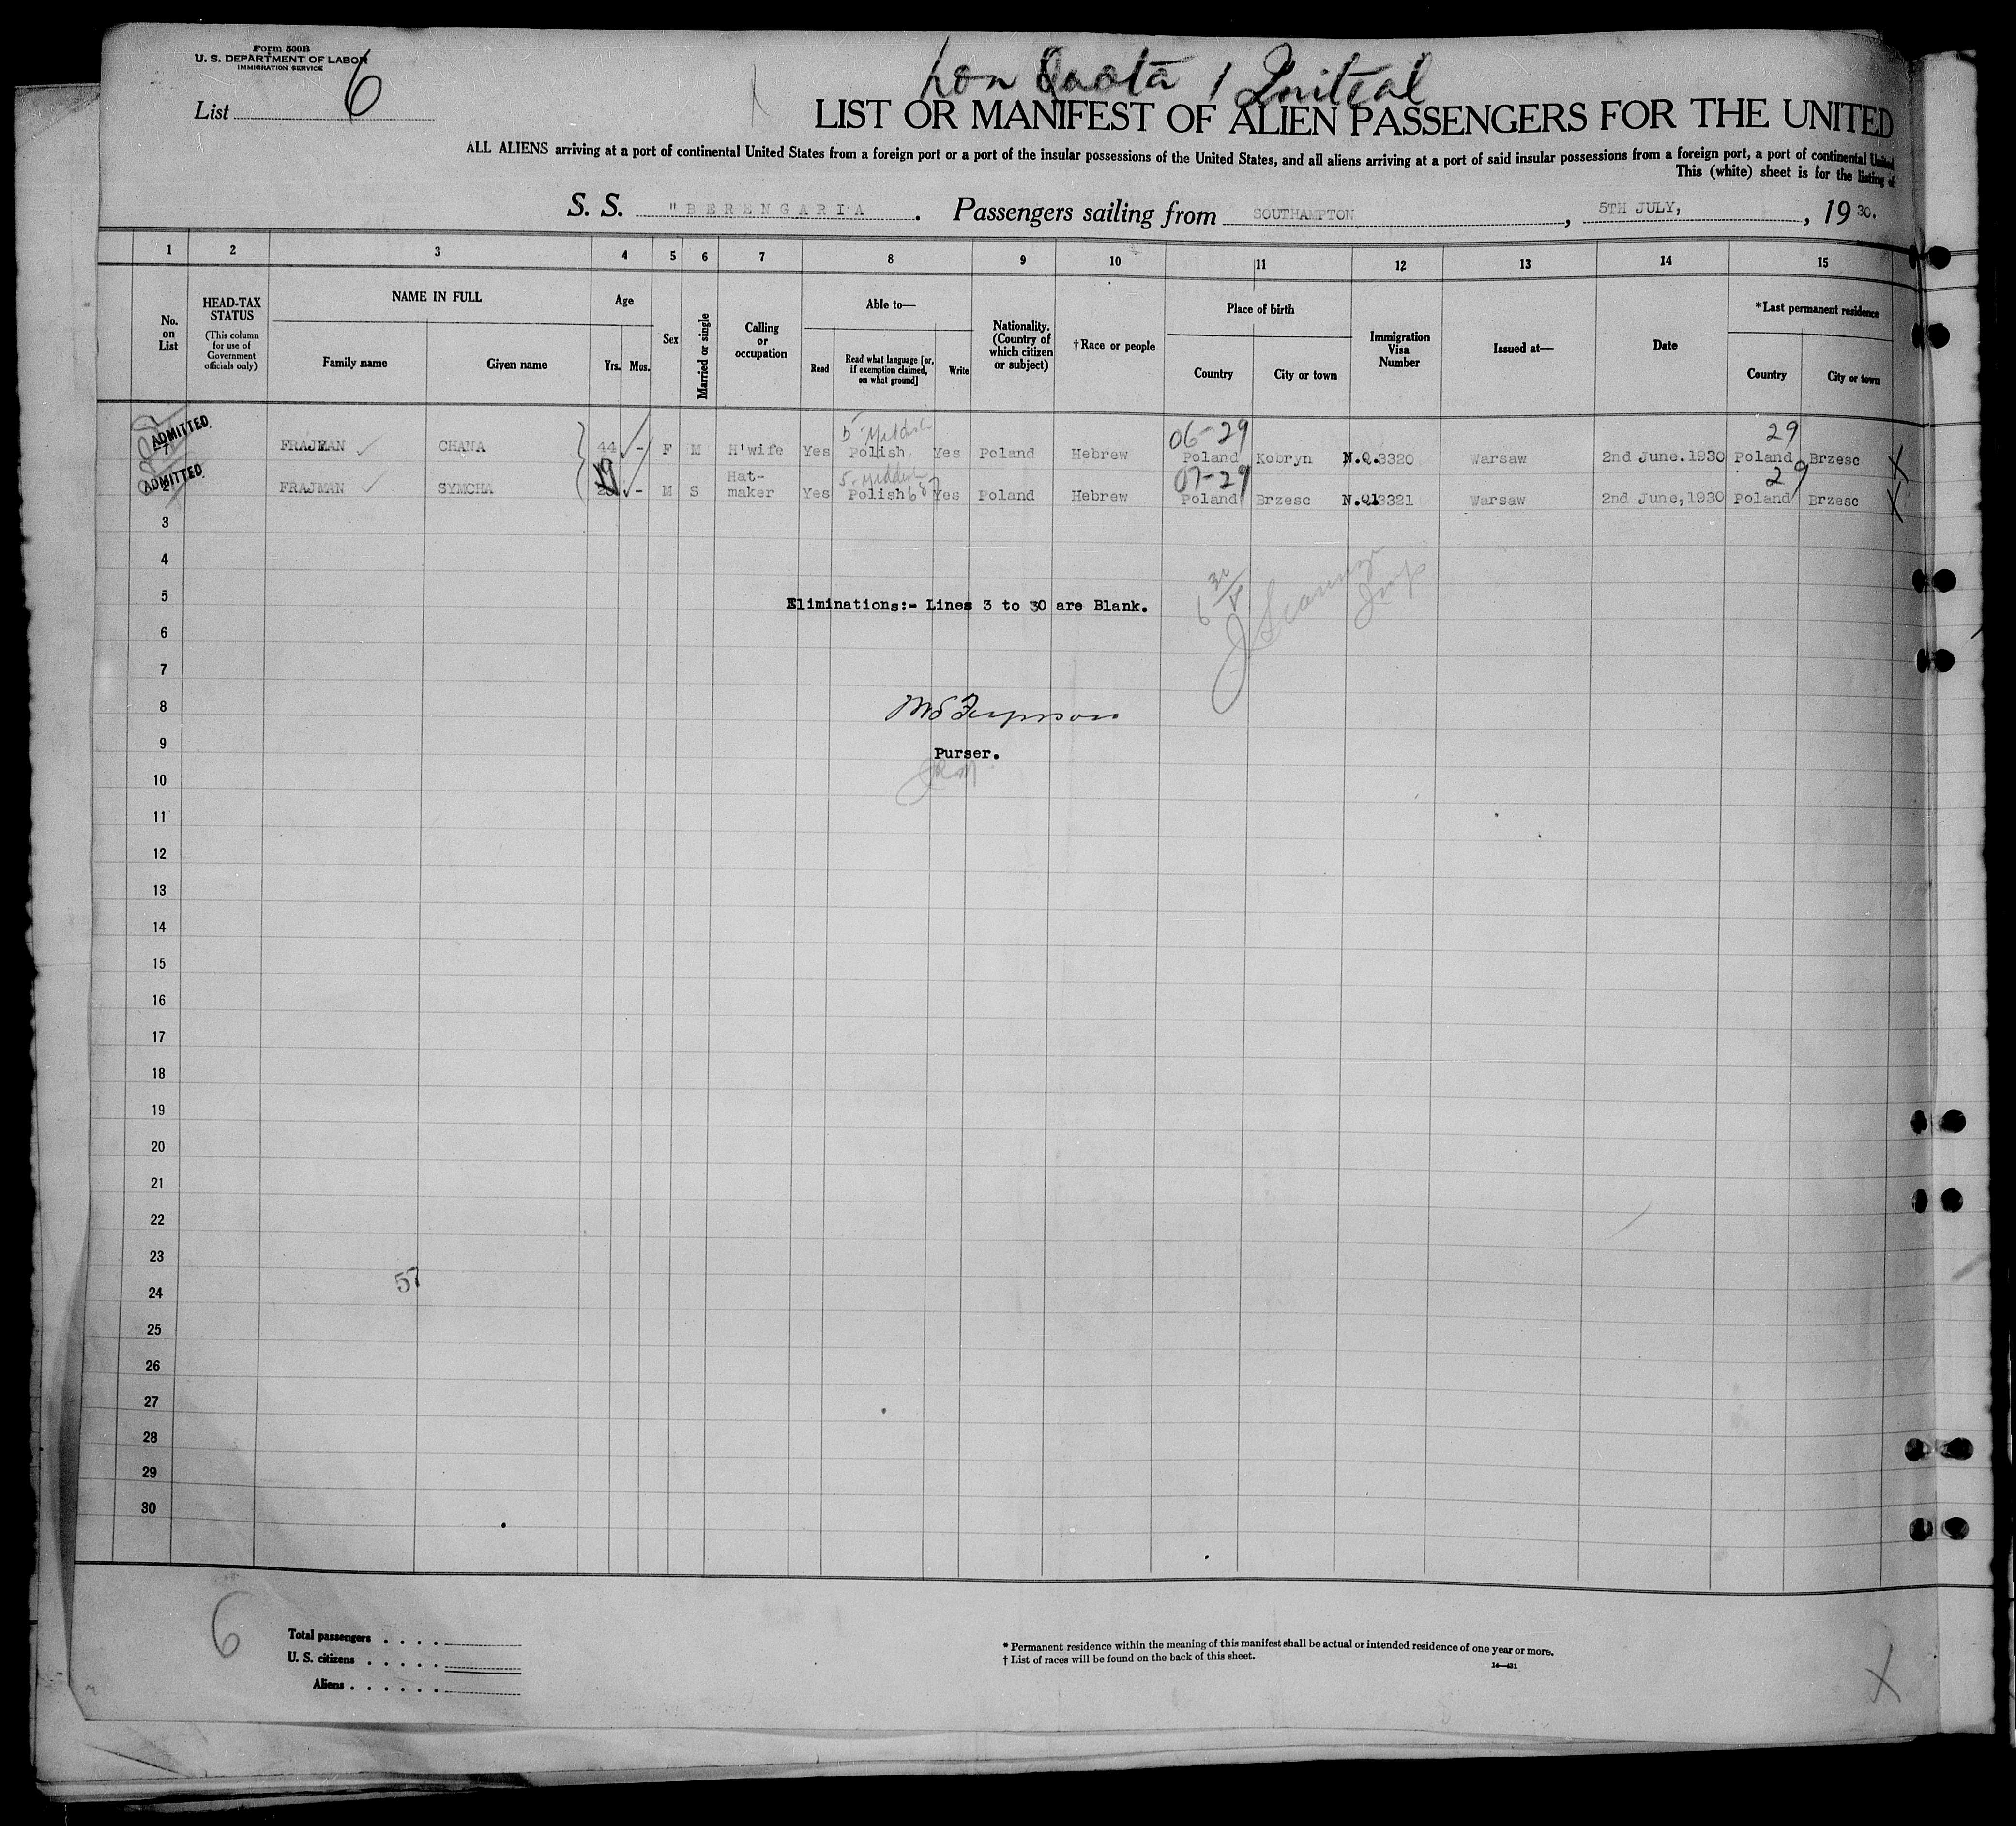 Form 500B
U. S. DEPARTMENT OF LABOR
IMMIGRATION SERVICE
List 6
Non Quota 1 Initial
LIST OR MANIFEST OF ALIEN PASSENGERS FOR THE UNITED
ALL ALIENS arriving at a port of continental United States from a foreign port or a port of the insular possessions of the United States, and all aliens arriving at a port of said insular possessions from a foreign port, a port of continental United
This (white) sheet is for the listing of
S. S. "BERENGARIA . Passengers sailing from SOUTHAMPTON, 5TH JULY, , 1930.
1 2 3 4 5 6 7 8 9 10 11 12 13 14 15
No. on List
HEAD-TAX STATUS
(This column for use of Government officials only)
NAME IN FULL
Family name Given name
Age
Yrs. Mos.
Sex
Married or single
Calling or occupation
Able to—
Read
Read what language [or, if exemption claimed, on what ground]
Write
Nationality. (Country of which citizen or subject)
†Race or people
Place of birth
Country City or town
Immigration Visa Number
Issued at—
Date
*Last permanent residence
Country City or town
5 Yiddish 06-29 29
ADMITTED 1 FRAJMAN CHANA 44 - F M H'wife Yes Polish Yes Poland Hebrew Poland Kobryn N.Q.3320 Warsaw 2nd June.1930 Poland Brzesc X
5 Yiddish 07-29 29
ADMITTED 2 FRAJMAN SYMCHA 19 - M S Hat-maker Yes Polish Yes Poland Hebrew Poland Brzesc Warsaw 2nd June,1930 Poland Brzesc X
3
4
5 Eliminations:- Lines 3 to 30 are Blank.
6
7
8
9 Purser.
10
11
12
13
14
15
16
17
18
19
20
21
22
23
57
24
25
26
27
28
29
30
6
Total passengers . . . .
U. S. citizens . . . . .
Aliens . . . . . .
* Permanent residence within the meaning of this manifest shall be actual or intended residence of one year or more.
† List of races will be found on the back of this sheet.
14—431
X